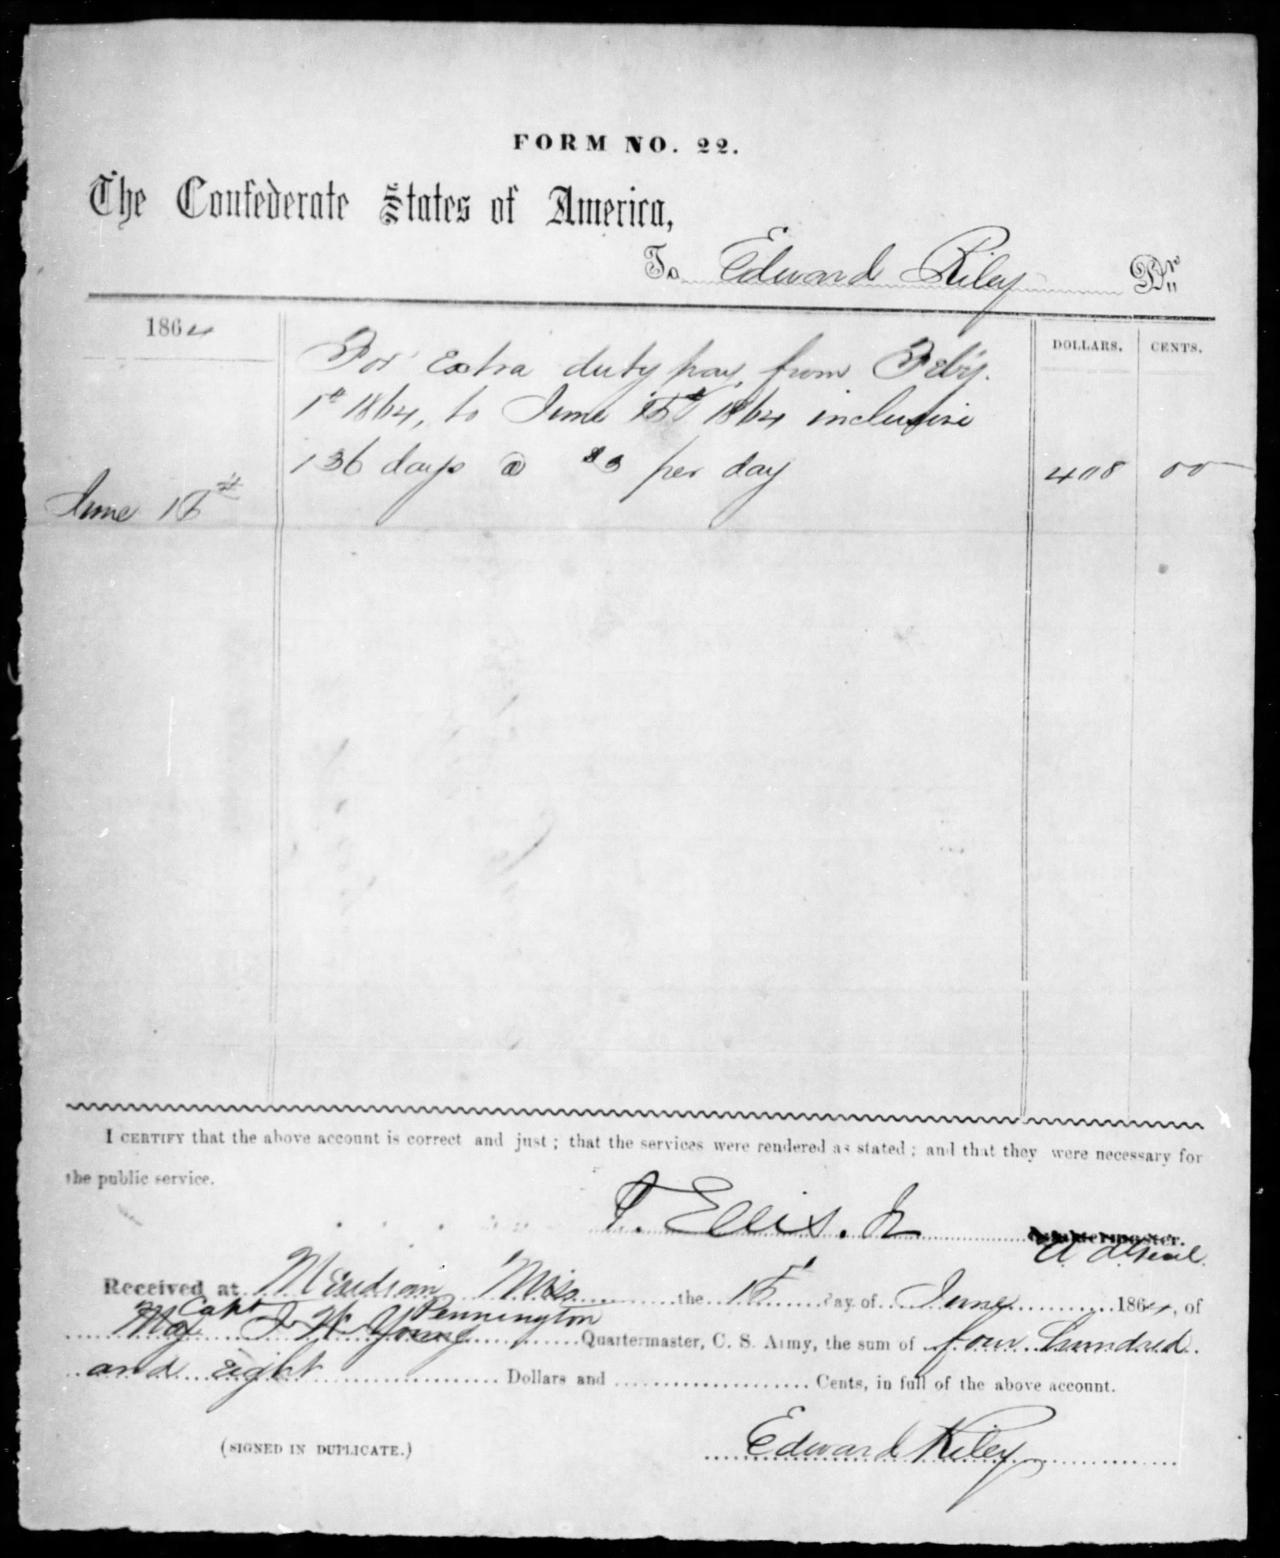 FORM NO. 22.
The Confederate States of America,
To Edward Riley Dr.
1864
DOLLARS. CENTS.
For Extra duty pay from Feby.
1st 1864, to June 15th 1864 inclusive
136 days @ $3 per day 408 00
June 15th
I CERTIFY that the above account is correct and just; that the services were rendered as stated; and that they were necessary for
the public service.
T. Ellis. Jr Quartermaster.
Received at Meridian Miss the 15th day of June 1864, of
Capt Pennington
Maj J W Young Quartermaster, C. S. Army, the sum of four hundred
and eight Dollars and Cents, in full of the above account.
(SIGNED IN DUPLICATE.)
Edward Riley